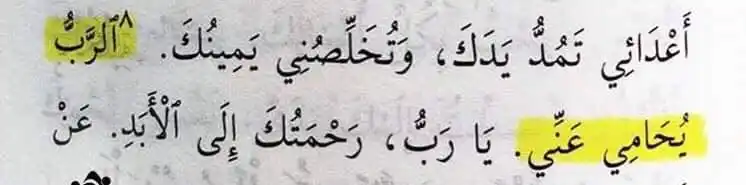 أَعْدَائِي تَمُدُّ يَدَكَ، وَتُخَلِّصُنِي يَمِينُكَ. ٨ٱلرَّبُّ
يُحَامِي عَنِّي. يَا رَبُّ، رَحْمَتُكَ إِلَى ٱلْأَبَدِ. عَنْ